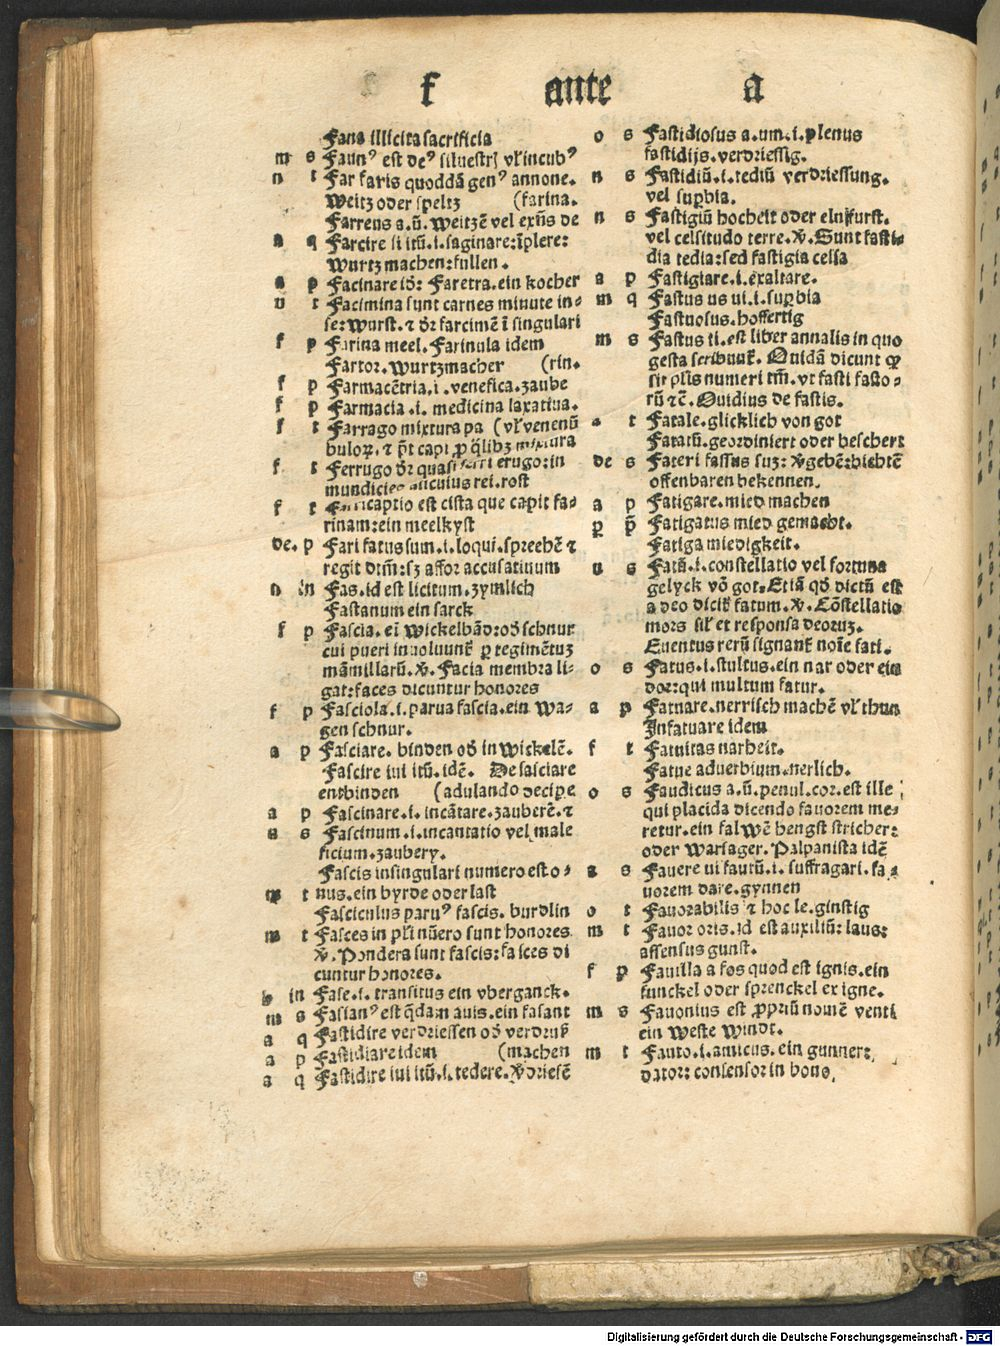 f ante a
Fana illicita sacrificia
m s Faunꝰ est deꝰ siluestrꝭ vl̕ incubꝰ
n t Far faris quoddā genꝰ annone.
Weitz oder speltz (farina.
Farreus a.ū. weitzē vel exn̄s de
a q Farcire si itū.i. saginare: īplere:
wurtz machen: fullen.
a p Facinare id: Faretra. ein kocher
n t Facimina sunt carnes minute in-
se: wurst. ⁊ dr̄ farcimē ī singulari
f p Farina meel. Farinula idem
Fartor. wurtzmacher (rin.
f p Farmacētria.i. venefica. zaube
f p Farmacia.i. medicina laxatiua.
f t Farrago mixtura pa (vl̕ venenū
buloꝝ. ⁊ p̄t capi ꝓ q̄libꝫ mixtura
f t Ferrugo dr̄ quasi ferri erugo: in
mundicies alicuius rei. rost
f t captio est cista que capit fa-
rinam: ein meelkyst
de. p Fari fatus sum.i. loqui. sprechē ⁊
regit dtm̄: sꝫ affor accusatiuum
n in Fas. id est licitum. zymlich
Fastanum ein sarck
f p Fascia. eī wickelbād: od̕ schnur
cui pueri inuoluunt᷑ ꝑ tegimētuꝫ
māmillarū. v̄. Facia membra li-
gat: faces dicuntur honores
f p Fasciola.i. parua fascia. ein wa-
gen schnur.
a p Fasciare. binden od̕ in wickelē.
Fascire iui itū. idē. De fasciare
entbinden (adulando decipe
a p Fascinare.i. incātare. zauberē. ⁊
n s Fascinum.i. incantatio vel male
ficium. zaubery.
Fascis in singulari numero est o-
m t nus. ein byrde oder last
Fasciculus paruꝰ fascis. burdlin
m t Fasces in plr̄i nūero sunt honores
v̄. Pondera sunt fascis: fasces di
cuntur honores.
in Fase.i. transitus ein vberganck.
m s Fasianꝰ est q̄dam auis. ein fasant
a q Fastidire verdriessen od̕ verdruß
a p Fastidiare idem (machen
a q Fastidire iui itū.i. tedere. v̄driesē
o s Fastidiosus a.um.i. plenus
fastidijs. verdriessig.
n s Fastidiū.i. tediū verdriessung.
vel suꝑbia.
n s Fastigiū hocheit oder ein furst.
vel celsitudo terre. v̄. Sunt fasti-
dia tedia: sed fastigia celsa
a p Fastigiare.i. exaltare.
m q Fastus us ui.i. suꝑbia
Fastuosus. hoffertig
m s Fastus ti. est liber annalis in quo
gesta scribunt᷑. Quidā dicunt ꝙ
sit pl̄is numeri tm̄. vt fasti fasto-
rū ⁊c̄. Ouidius de fastis.
a t Fatale. glicklich von got
Fatatū. geordiniert oder beschert
de s Fateri fassus suꝫ: v̄gebē: bichtē
offenbaren bekennen.
a p Fatigare. mied machen
ꝑ p̄ Fatigatus mied gemacht.
Fatiga miedigkeit.
n s Fatū.i. constellatio vel fortuna
gelyck vō got. Etiā qd̕ dictū est
a deo dicit᷑ fatum. v̄. Cōstellatio
mors sil̕ et responsa deoruꝫ.
Euentus rerū signant᷑ noīe fati.
o s Fatus.i. stultus. ein nar oder ein
dor: qui multum fatur.
a p Fatuare. nerrisch machē vl̕ thun
Infatuare idem
f t Fatuitas narheit.
Fatue aduerbium. nerlich.
o s Faudicus a.ū. penul. cor. est ille
qui placida dicendo fauorem me-
retur. ein falwē hengst stricher:
oder warsager. Palpanista idē
a s Fauere ui fautū.i. suffragari. fa
uorem dare. gynnen
o t Fauorabilis ⁊ hoc le. ginstig
m t Fauor oris. id est auxiliū: laus:
assensus gunst.
f p Fauilla a fos quod est ignis. ein
funckel oder sprenckel ex igne.
m s Fauonius est ꝓpriū nomē venti
ein weste windt.
m t Fauto.i. amicus. ein gunner:
dator: consensor in bono.
Digitalisierung gefördert durch die Deutsche Forschungsgemeinschaft - DFG